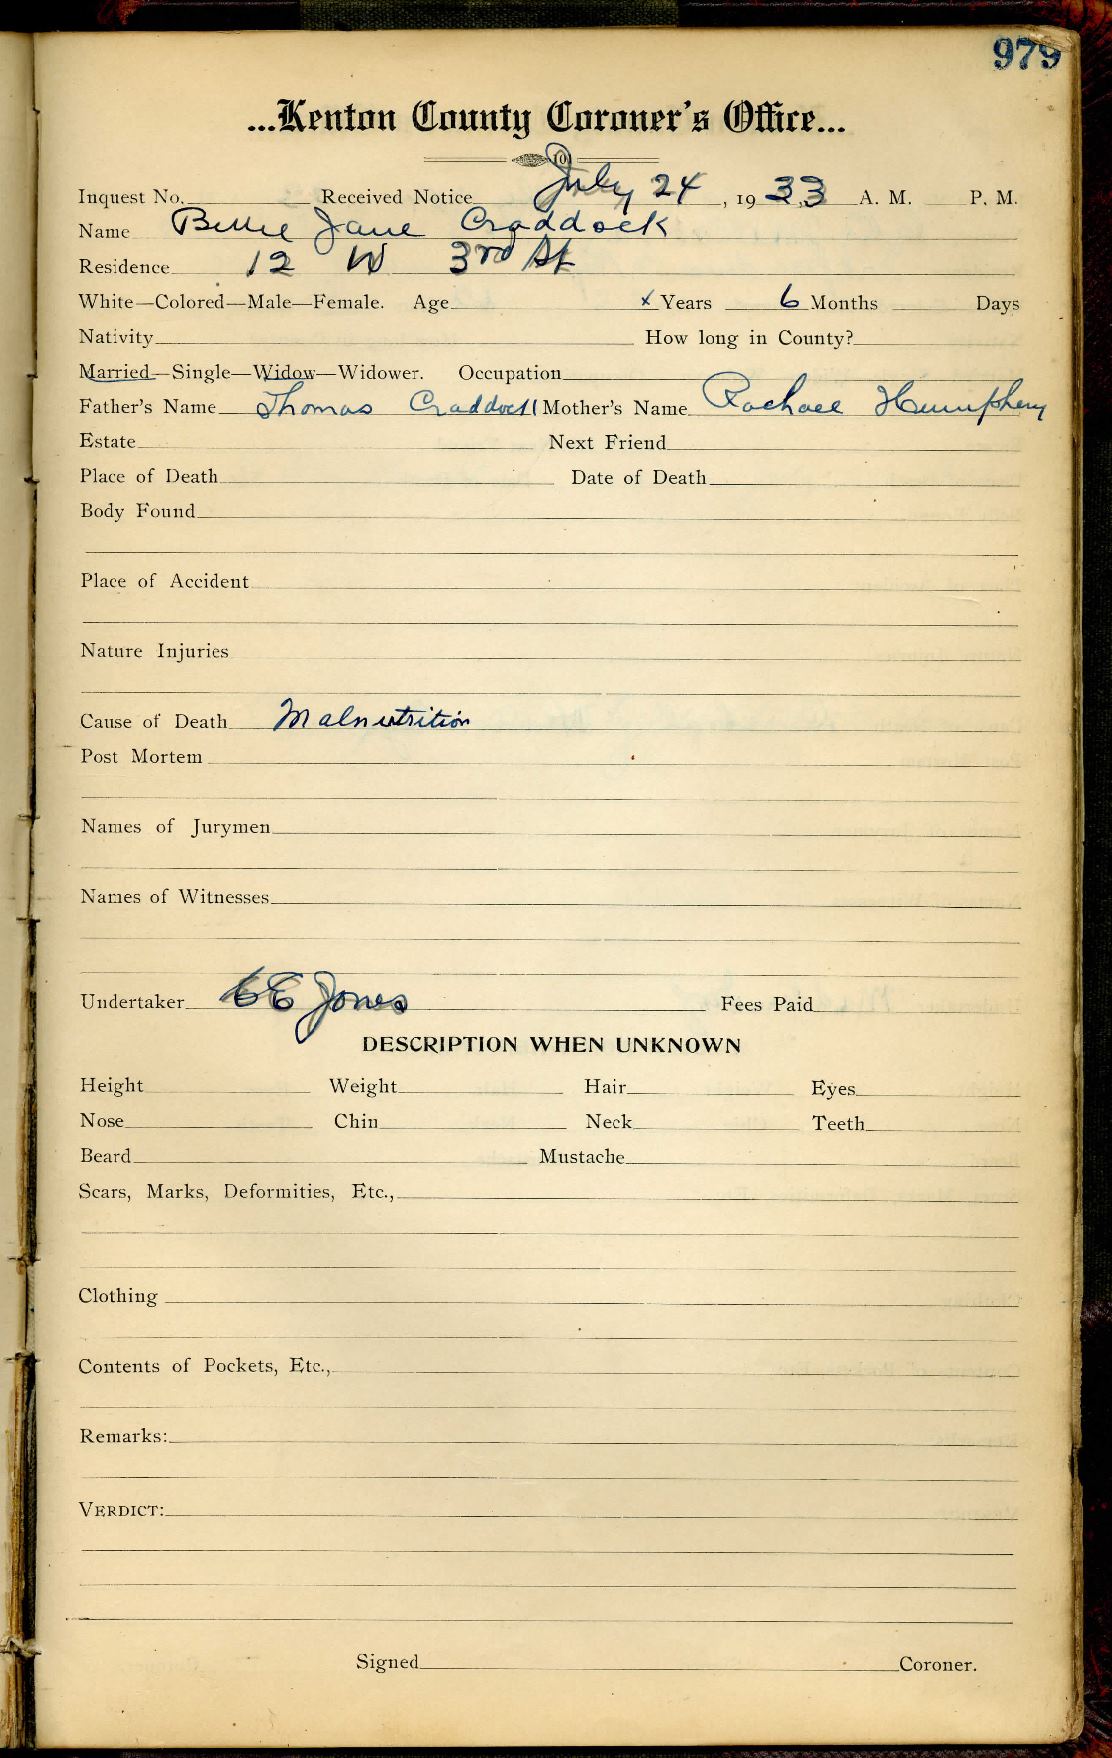 979
...Kenton County Coroner's Office...
Inquest No. Received Notice July 24, 1933 A. M. P. M.
Name Billie Jane Craddock
Residence 12 W 3rd St
White—Colored—Male—Female. Age x Years 6 Months Days
Nativity How long in County?
Married—Single—Widow—Widower. Occupation
Father's Name Thomas Craddock Mother's Name Rachael Humphery
Estate Next Friend
Place of Death Date of Death
Body Found
Place of Accident
Nature Injuries
Cause of Death Malnutrition
Post Mortem
Names of Jurymen
Names of Witnesses
Undertaker CE Jones Fees Paid
DESCRIPTION WHEN UNKNOWN
Height Weight Hair Eyes
Nose Chin Neck Teeth
Beard Mustache
Scars, Marks, Deformities, Etc.,
Clothing
Contents of Pockets, Etc.,
Remarks:
VERDICT:
Signed Coroner.